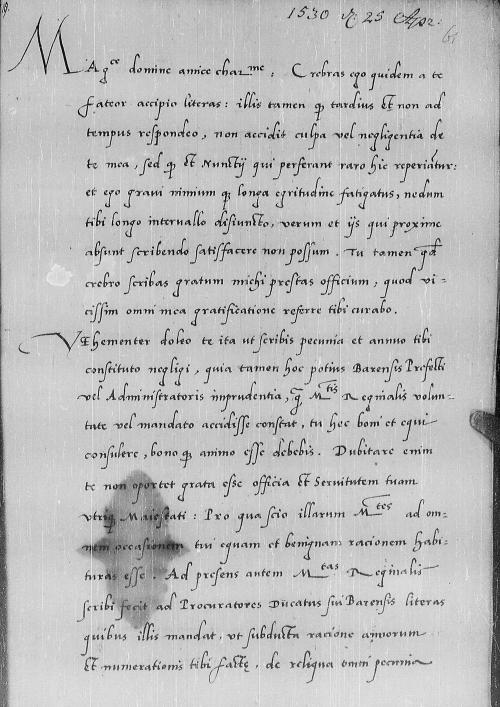 1530 25 Apr.
61
MAg^ce domine amice char^me: Crebras ego quidem a te
fateor accipio literas: illis tamen q tardius et non ad
tempus respondeo, non accidit culpa vel negligentia de
te mea, sed q et Nuncij qui perferant raro hic reperiãtur:
et ego gravi nimium q longa egritudine fatigatus, nedum
tibi longo intervallo disiuncto, verum et ijs qui proxime
absunt scribendo satisfacere non possum. Tu tamen qd
crebro scribas gratum michi prestas officium, quod vi-
cissim omni mea gratificatione referre tibi curabo.
VEhementer doleo te ita ut scribis pecunia et annuo tibi
constituto negligi, quia tamen hoc potius Barensis Prefecti
vel Administratoris imprudentia, q M^tis Reginalis volun-
tate vel mandato accidisse constat, tu hec boni et equi
consulere, bono q animo esse debebis. Dubitare enim
te non oportet grata esse officia et Servitutem tuam
utriq Maiestati: Pro qua scio illarum M^tes ad om-
nem occasionem tui equam et benignam racionem habi-
turas esse. Ad presens autem M^tas Reginalis
scribi fecit ad Procuratores Ducatus sui Barensis literas
quibus illis mandat, ut subducta racione annorum
et numerationis tibi factę, de reliqua omni pecunia